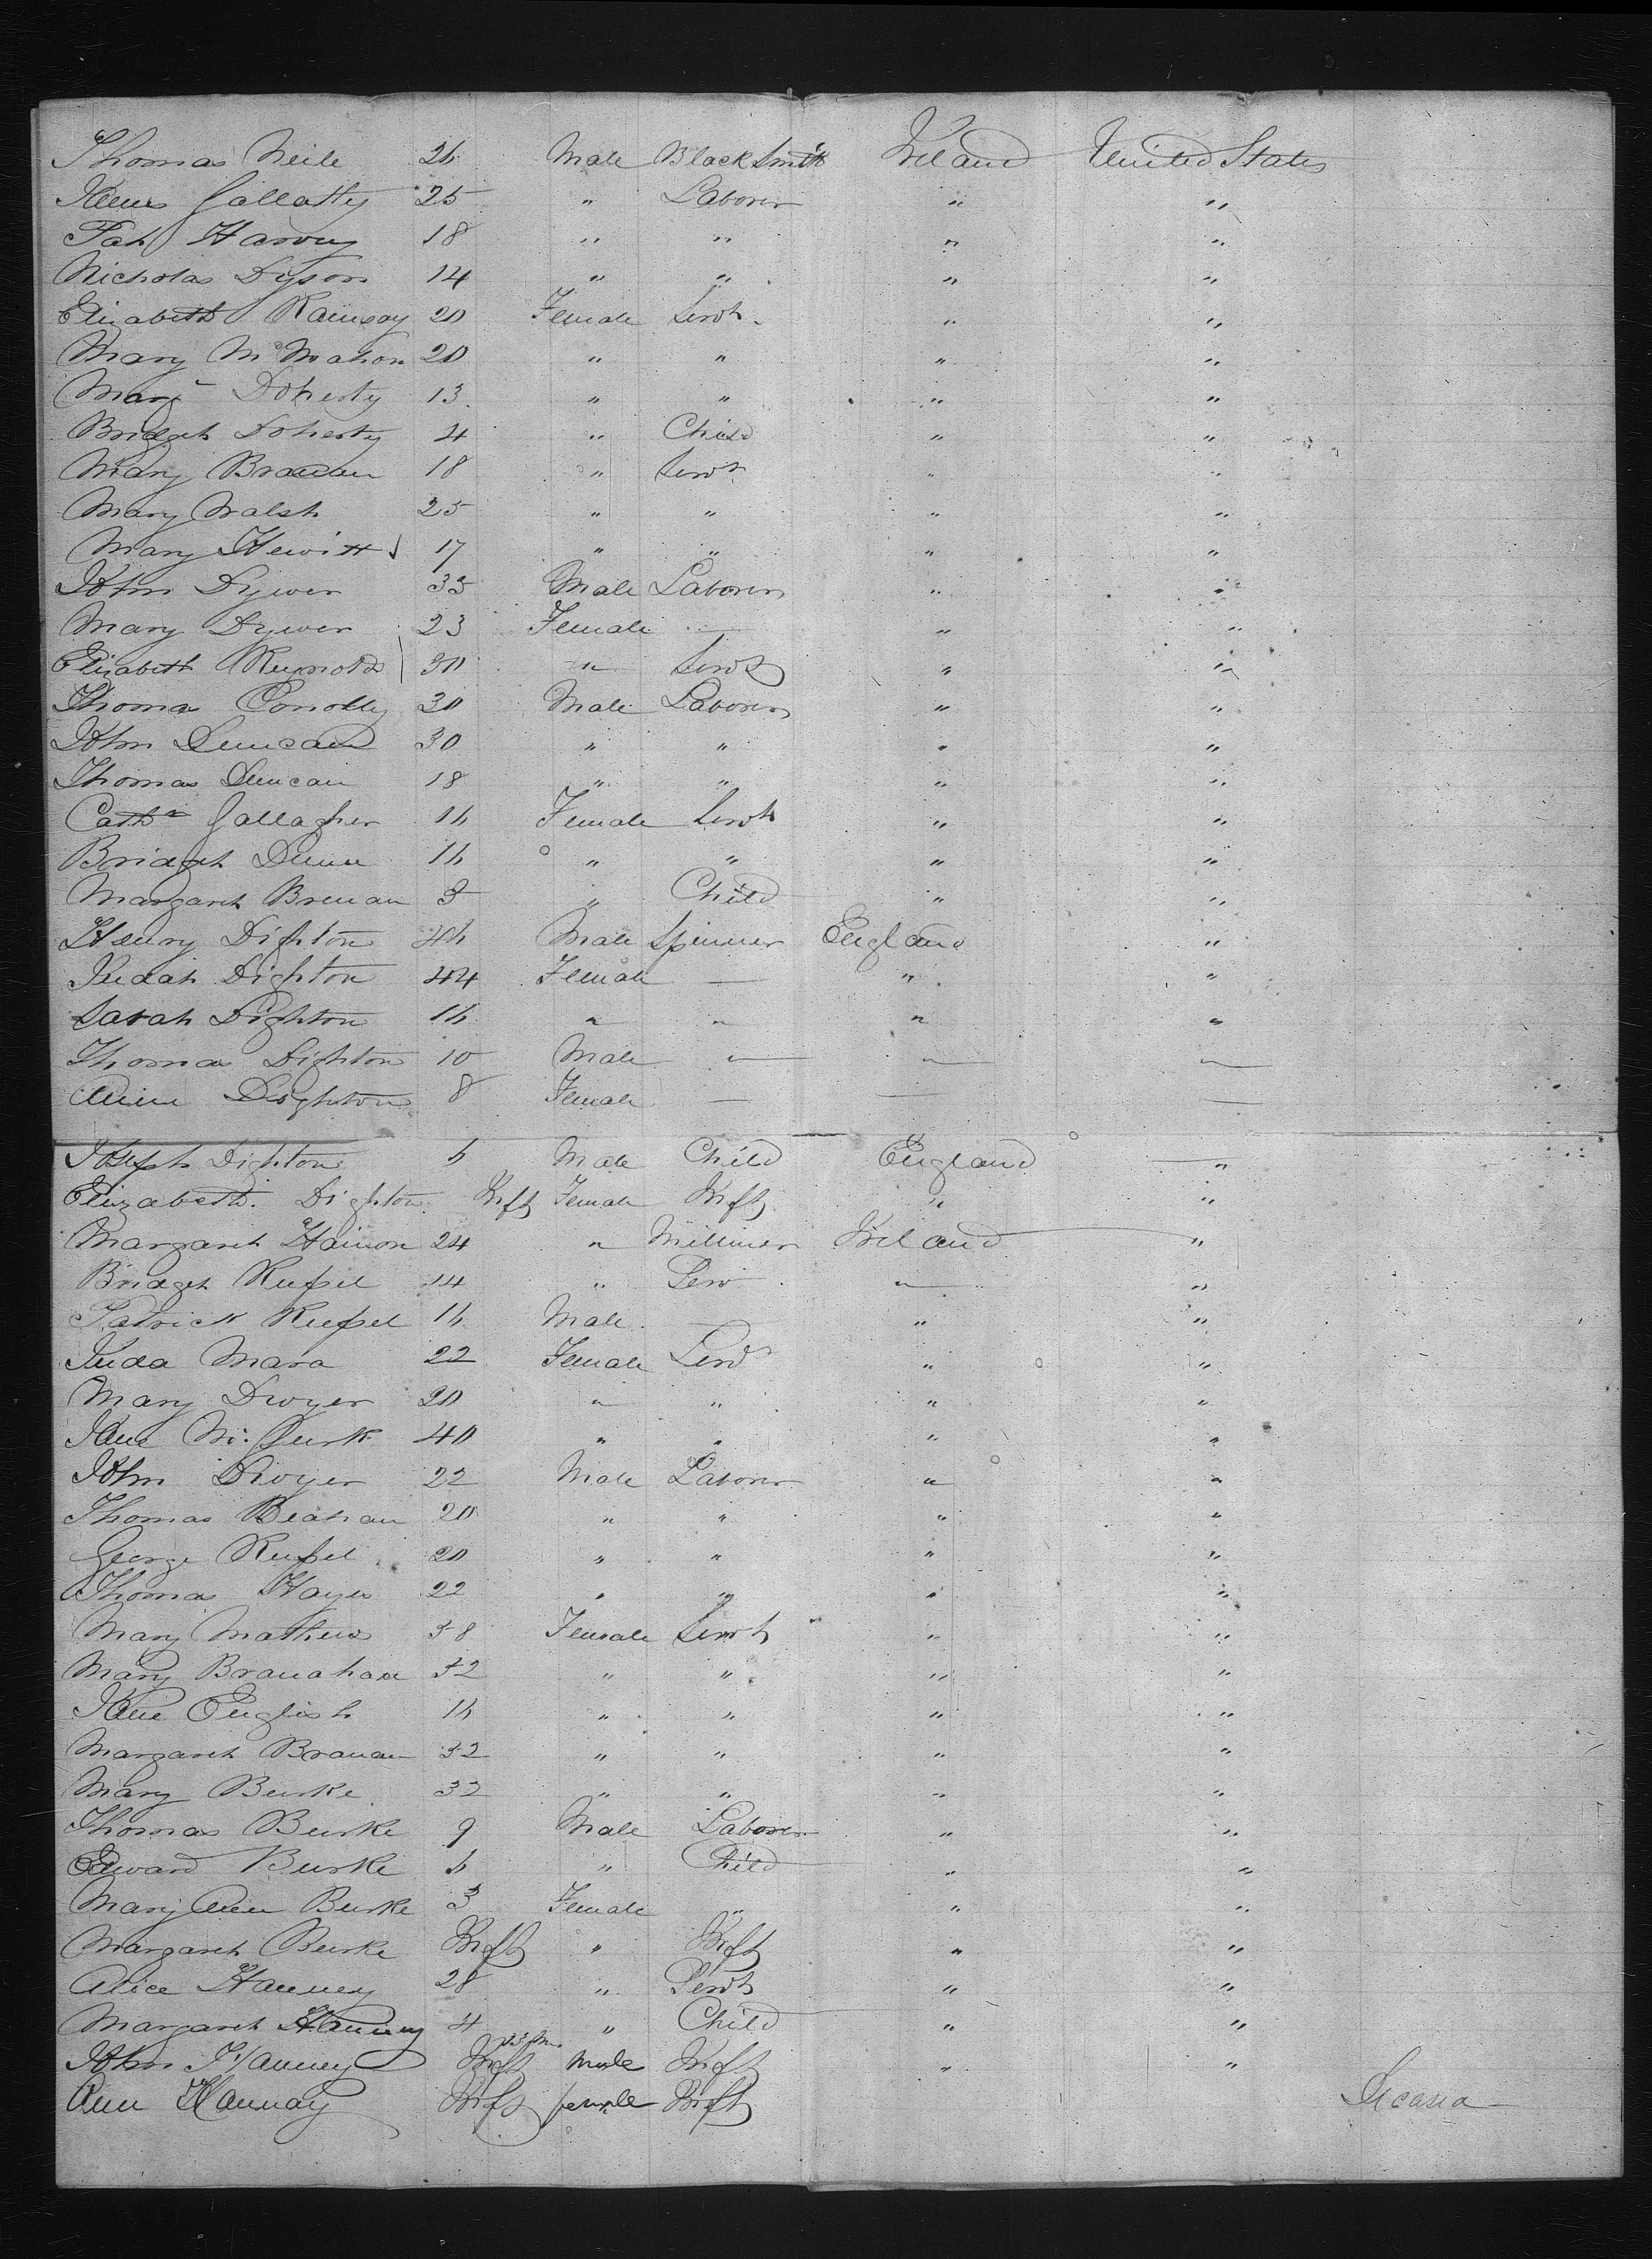 Thomas Neile 26 Male Blacksmith Ireland United States
James Gallatty 25 " Laborer " "
Pat Harvey 18 " " " "
Nicholas Dyson 14 " " " "
Elizabeth Ramsay 20 Female Servt. " "
Mary McMahon 20 " " " "
Mary Doherty 13 " " " "
Bridget Doherty 4 " Child " "
Mary 18 " Servt " "
Mary Walsh 25 " " " "
Mary Hewitt 17 " " " "
John Dywer 35 Male Laborer " "
Mary Dywer 23 Female — " "
Elizabeth Reynolds 30 " Servt " "
Thomas Conolly 30 Male Laborer " "
John Duncan 30 " " " "
Thomas Duncan 18 " " " "
Cathe Gallagher 16 Female Servt " "
Bridget Dunn 16 " " " "
Margaret Brenan " Child " "
Henry Dighton 46 Male Spinner England "
Judah Dighton 44 Female — " "
Sarah Dighton 16 " " " "
Thomas Dighton 10 Male " " "
Anne Dighton 8 Female — — —
Joseph Dighton 6 Male Child England "
Elizabeth Dighton Inft Female Inft " "
Margaret 24 " Milliner Ireland "
Bridget Russel 14 " Serv " "
Patrick Russel 16 Male — " "
Juda Mara 22 Female Servt " "
Mary Dwyer 20 " " " "
Jane Mc Gurk 40 " " " "
John Dwyer 22 Male Laborer " "
Thomas Beahan 20 " " " "
George Russel 20 " " " "
Thomas Hayes 22 " " " "
Mary Mathews 38 Female Servt " "
Mary Branahan 32 " " " "
Jane English 16 " " " "
Margaret Branan 32 " " " "
Mary Burke 32 " " " "
Thomas Burke 9 Male Laborer " "
Edward Burke 6 " Child " "
Mary Ann Burke 3 Female " " "
Margaret Burke Inft " Inft " "
Alice Hanney 28 " Servt " "
Margaret Hanney 4 " Child " "
John Hanney Inft male Inft " "
Ann Hannay Inft female Inft